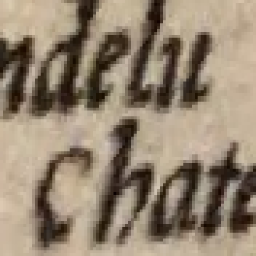 ndelu
Chate